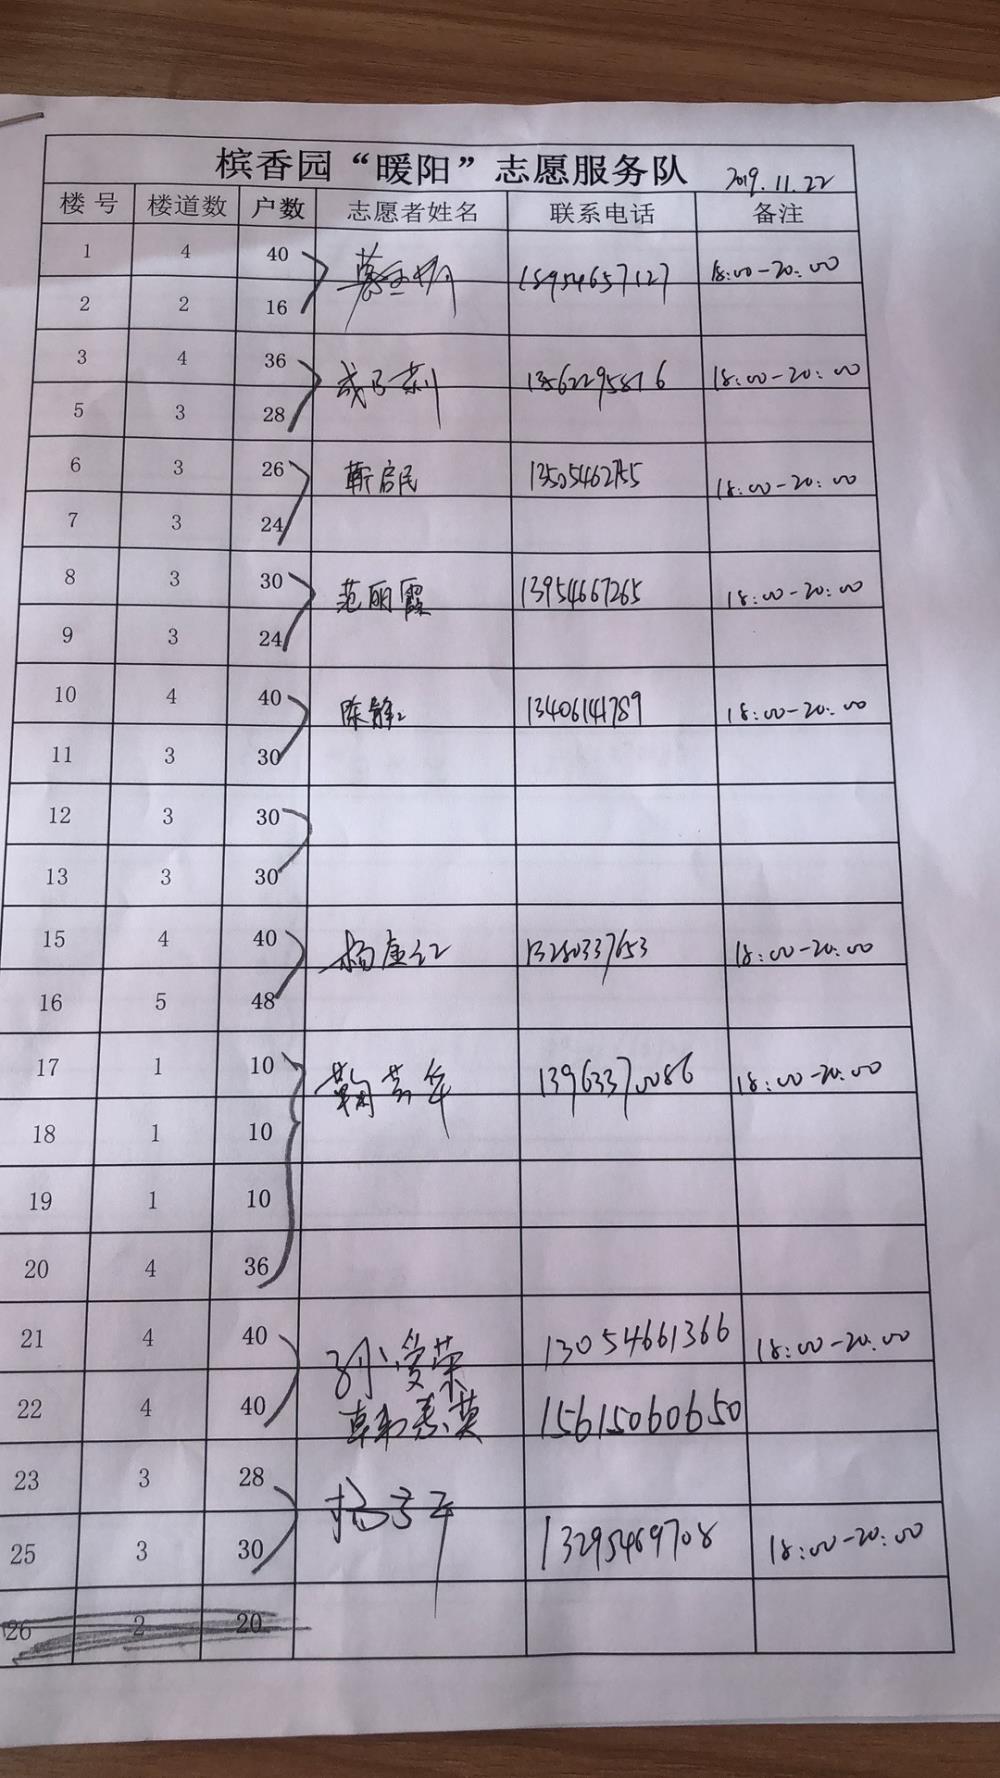 槟香园“暖阳”志愿服务队 2019.11.22
楼号 楼道数 户数 志愿者姓名 联系电话 备注
1 4 40 18954657127 18:00-20:00
2 2 16
3 4 36 13562295876 18:00-20:00
5 3 28
6 3 26 靳启民 13505462755 18:00-20:00
7 3 24
8 3 30 范丽霞 13954667265 18:00-20:00
9 3 24
10 4 40 陈静 13406141789 18:00-20:00
11 3 30
12 3 30
13 3 30
15 4 40 杨 13280337653 18:00-20:00
16 5 48
17 1 10 13963370086 18:00-20:00
18 1 10
19 1 10
20 4 36
21 4 40 孙爱荣 13054661366 18:00-20:00
22 4 40 15615060650
23 3 28
25 3 30 13295469708 18:00-20:00
26 2 20